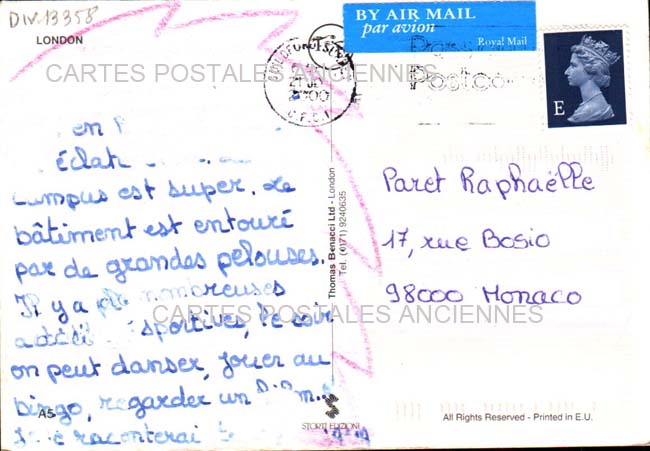 DIV.13358
LONDON
BY AIR MAIL
par avion
Royal Mail
E
CARTES POSTALES ANCIENNES
2000
en
éclat
campus est super. Le
bâtiment est entouré
par de grandes pelouses.
Il y a de nombreuses
sportives, le soir
on peut danser, jouer au
bingo, regarder un
raconterai
A5
Thomas Benacci Ltd - London
Tel. (0171) 9240635
STORTI EDIZIONI
Paret Raphaëlle
17, rue Bosio
98000 Monaco
CARTES POSTALES ANCIENNES
All Rights Reserved - Printed in E.U.